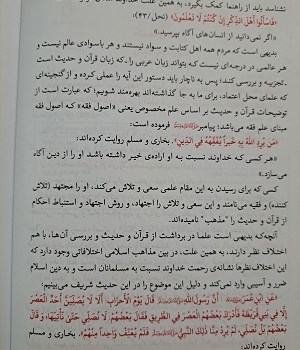 نشناسد باید از راهنما کمک بگیرد، به همین علت خداوند
﴿فَاسْأَلُوا أَهْلَ الذِّكْرِ إِنْ كُنْتُمْ لَا تَعْلَمُونَ﴾ (نحل/۴۳):
«اگر نمی‌دانید از انسان‌های آگاه بپرسید.»
بدیهی است که مردم همه اهل کتابت و سواد نیستند و هر باسوادی عالم نیست و
هر عالمی در درجه‌ای نیست که بتواند زبان عربی را ـ که زبان قرآن و حدیث است
ـ تجزیه و بررسی کند؛ پس به ناچار باید دستور این آیه را عملی کرده و از گنجینه‌ای
که علمای محل اعتماد، برای ما به جا گذاشته‌اند بهره‌مند شویم؛ که عبارت است از
توضیحات قرآن و حدیث بر اساس علم مخصوص یعنی «اصول فقه» که اصول فقه
مبنای علم فقه می‌باشد؛ پیامبر فرموده است:
«مَن يُرِدِ اللهُ بِهِ خَيراً يُفَقِّههُ فِي الدِّينِ». بخاری و مسلم روایت کرده‌اند:
«هر کسی که خداوند نسبت به او اراده‌ی خیر داشته باشد او را از دین آگاه
می‌سازد.»
کسی که برای رسیدن به این مقام علمی سعی و تلاش می‌کند، او را مجتهد (تلاش
کننده) و فقیه می‌نامند و این سعی و تلاش را اجتهاد، و روش اجتهاد و استنباط احکام
از قرآن و حدیث را "مذهب" نامیده‌اند.
آنچه‌که بدیهی است علما در برداشت از قرآن و حدیث و بررسی آن‌ها، با هم
اختلاف نظر دارند، به همین علت، در بین مذاهب اسلامی اختلافاتی وجود دارد که
این اختلاف نظرها نشانه‌ی رحمت خداوند نسبت به مسلمانان است و به دین اسلام
ضرر و آسیبی وارد نمی‌کند، و دلیل این موضوع را در این حدیث شریف می‌بینیم:
«عَنِ ابْنِ عُمَرَ أَنَّ رَسُولَ اللهِ قَالَ يَوْمَ الْأَحْزَابِ أَلَا لَا يُصَلِّيَنَّ أَحَدٌ الْعَصْرَ
إِلَّا فِي بَنِي قُرَيْظَةَ فَأَدْرَكَ بَعْضُهُمُ الْعَصْرَ فِي الطَّرِيقِ فَقَالَ بَعْضُهُمْ لَا نُصَلِّي حَتَّى نَأْتِيَهَا، وَ قَالَ
بَعْضُهُمْ بَلْ نُصَلِّي، لَمْ يُرِدْ مِنَّا ذَلِكَ فَلَمْ يُعَنِّفْ وَاحِداً مِنْهُمْ». بخاری و مسلم
روایت کرده‌اند: